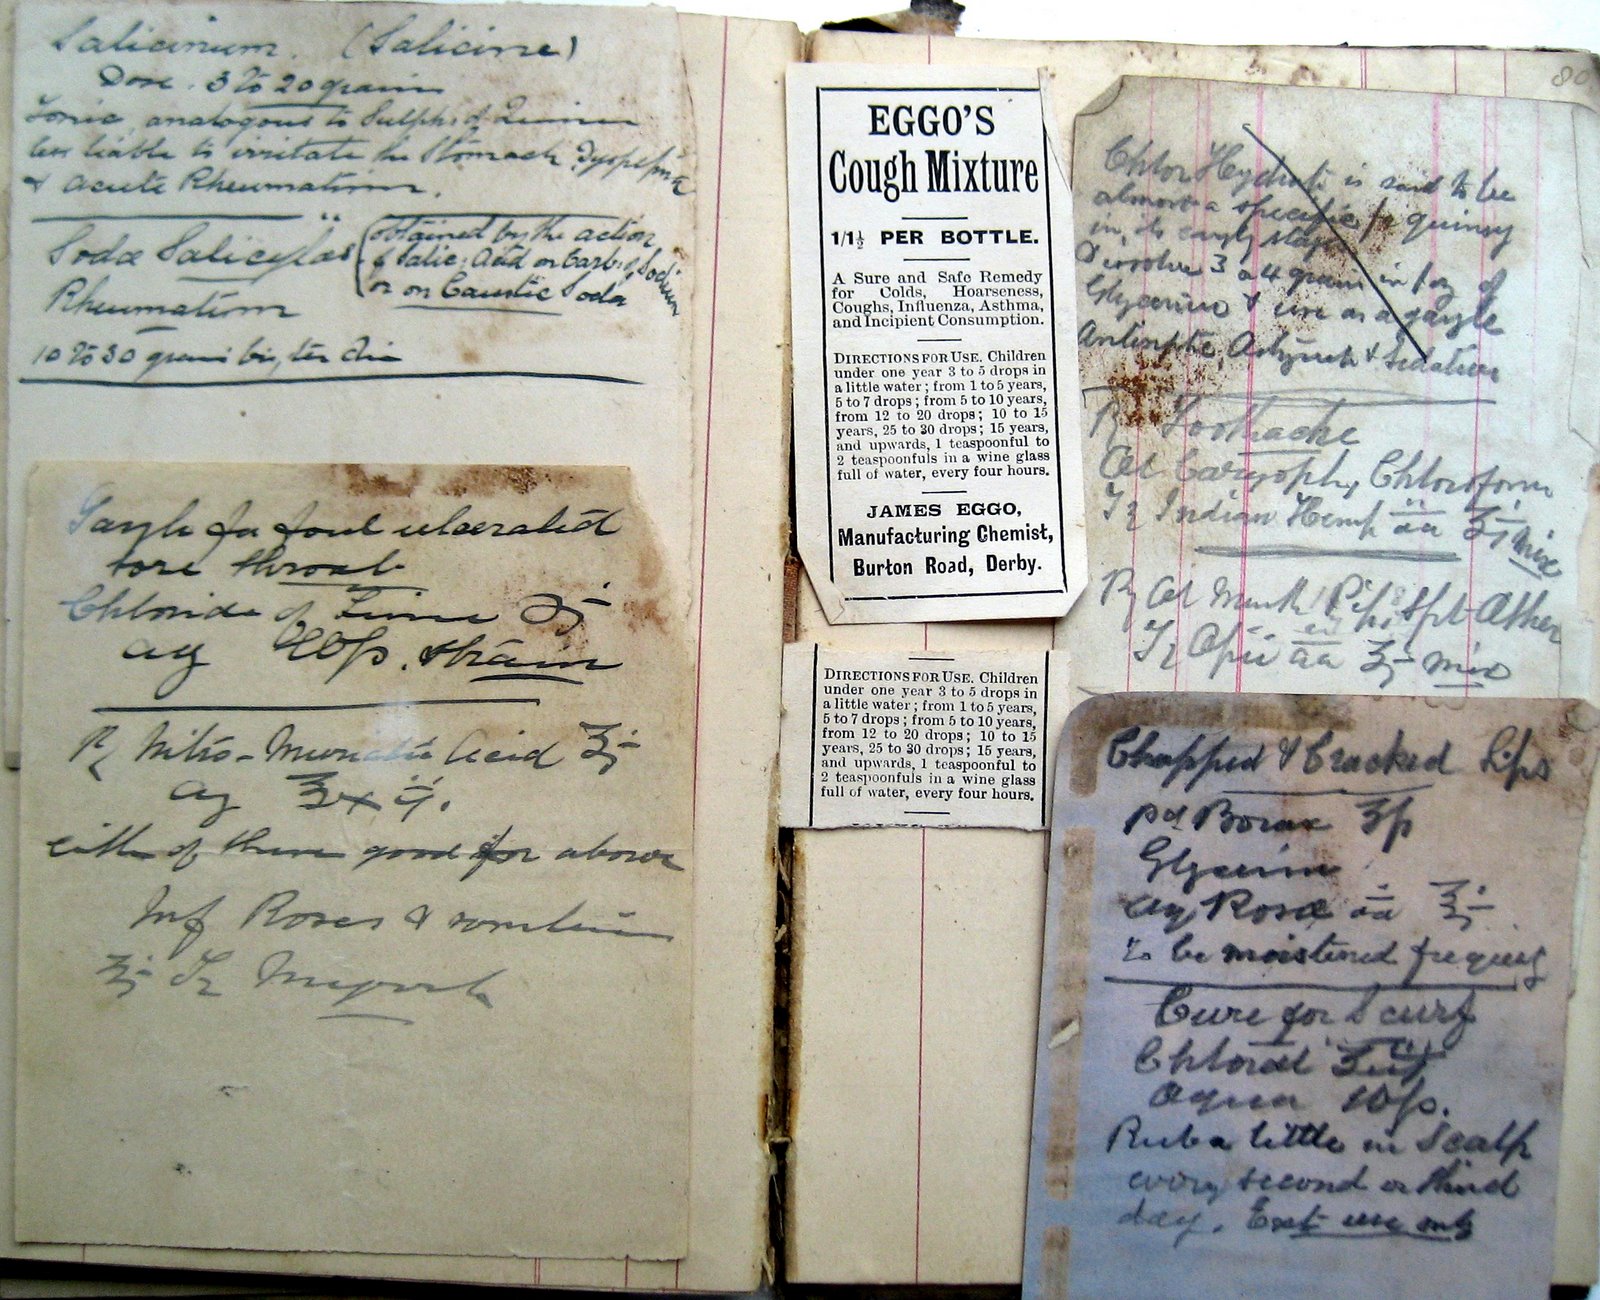 Salicinum. (Salicine)
Dose. 3 to 20 grains
Tonic, analogous to Sulph: of Quinine
less liable to irritate the Stomach. Dyspepsia
& Acute Rheumatism.
Sodæ Salicylas (obtained by the action
of Salic: Acid on Carb: of Sodium
or on Caustic Soda
Rheumatism
10 to 30 grains bis, ter die
Gargle for foul ulcerated
sore throat
Chloride of Lime ʒj
aq strain
℞ Nitro-Muriatic Acid ʒj
aq ℥xij.
either of these good for above
Inf Roses & combine
ʒj Tr Myrrh
EGGO'S
Cough Mixture
1/1½ PER BOTTLE.
A Sure and Safe Remedy
for Colds, Hoarseness,
Coughs, Influenza, Asthma,
and Incipient Consumption.
DIRECTIONS FOR USE. Children
under one year 3 to 5 drops in
a little water; from 1 to 5 years,
5 to 7 drops; from 5 to 10 years,
from 12 to 20 drops; 10 to 15
years, 25 to 30 drops; 15 years,
and upwards, 1 teaspoonful to
2 teaspoonfuls in a wine glass
full of water, every four hours.
JAMES EGGO,
Manufacturing Chemist,
Burton Road, Derby.
DIRECTIONS FOR USE. Children
under one year 3 to 5 drops in
a little water; from 1 to 5 years,
5 to 7 drops; from 5 to 10 years,
from 12 to 20 drops; 10 to 15
years, 25 to 30 drops; 15 years,
and upwards, 1 teaspoonful to
2 teaspoonfuls in a wine glass
full of water, every four hours.
80
Chlor Hydrate is said to be
almost a specific for quinsy
in its early stage
Dissolve 3 or 4 grains in 1 oz of
Glycerine & use as a gargle
Antiseptic, Astringent & Sedative
℞ Toothache
Ol Caryoph, Chloroform
Tr Indian Hemp āā ʒj mix
℞ Ol Menth Pip, Spt Æther
Tr Opii āā ʒj mix
Chapped & Cracked Lips
pd Borax
Glycerine
aq Rosæ āā ℥j
to be moistened frequently
Cure for Scurf
Chloral
Aqua 10
Rub a little in Scalp
every second or third
day. Ext use only